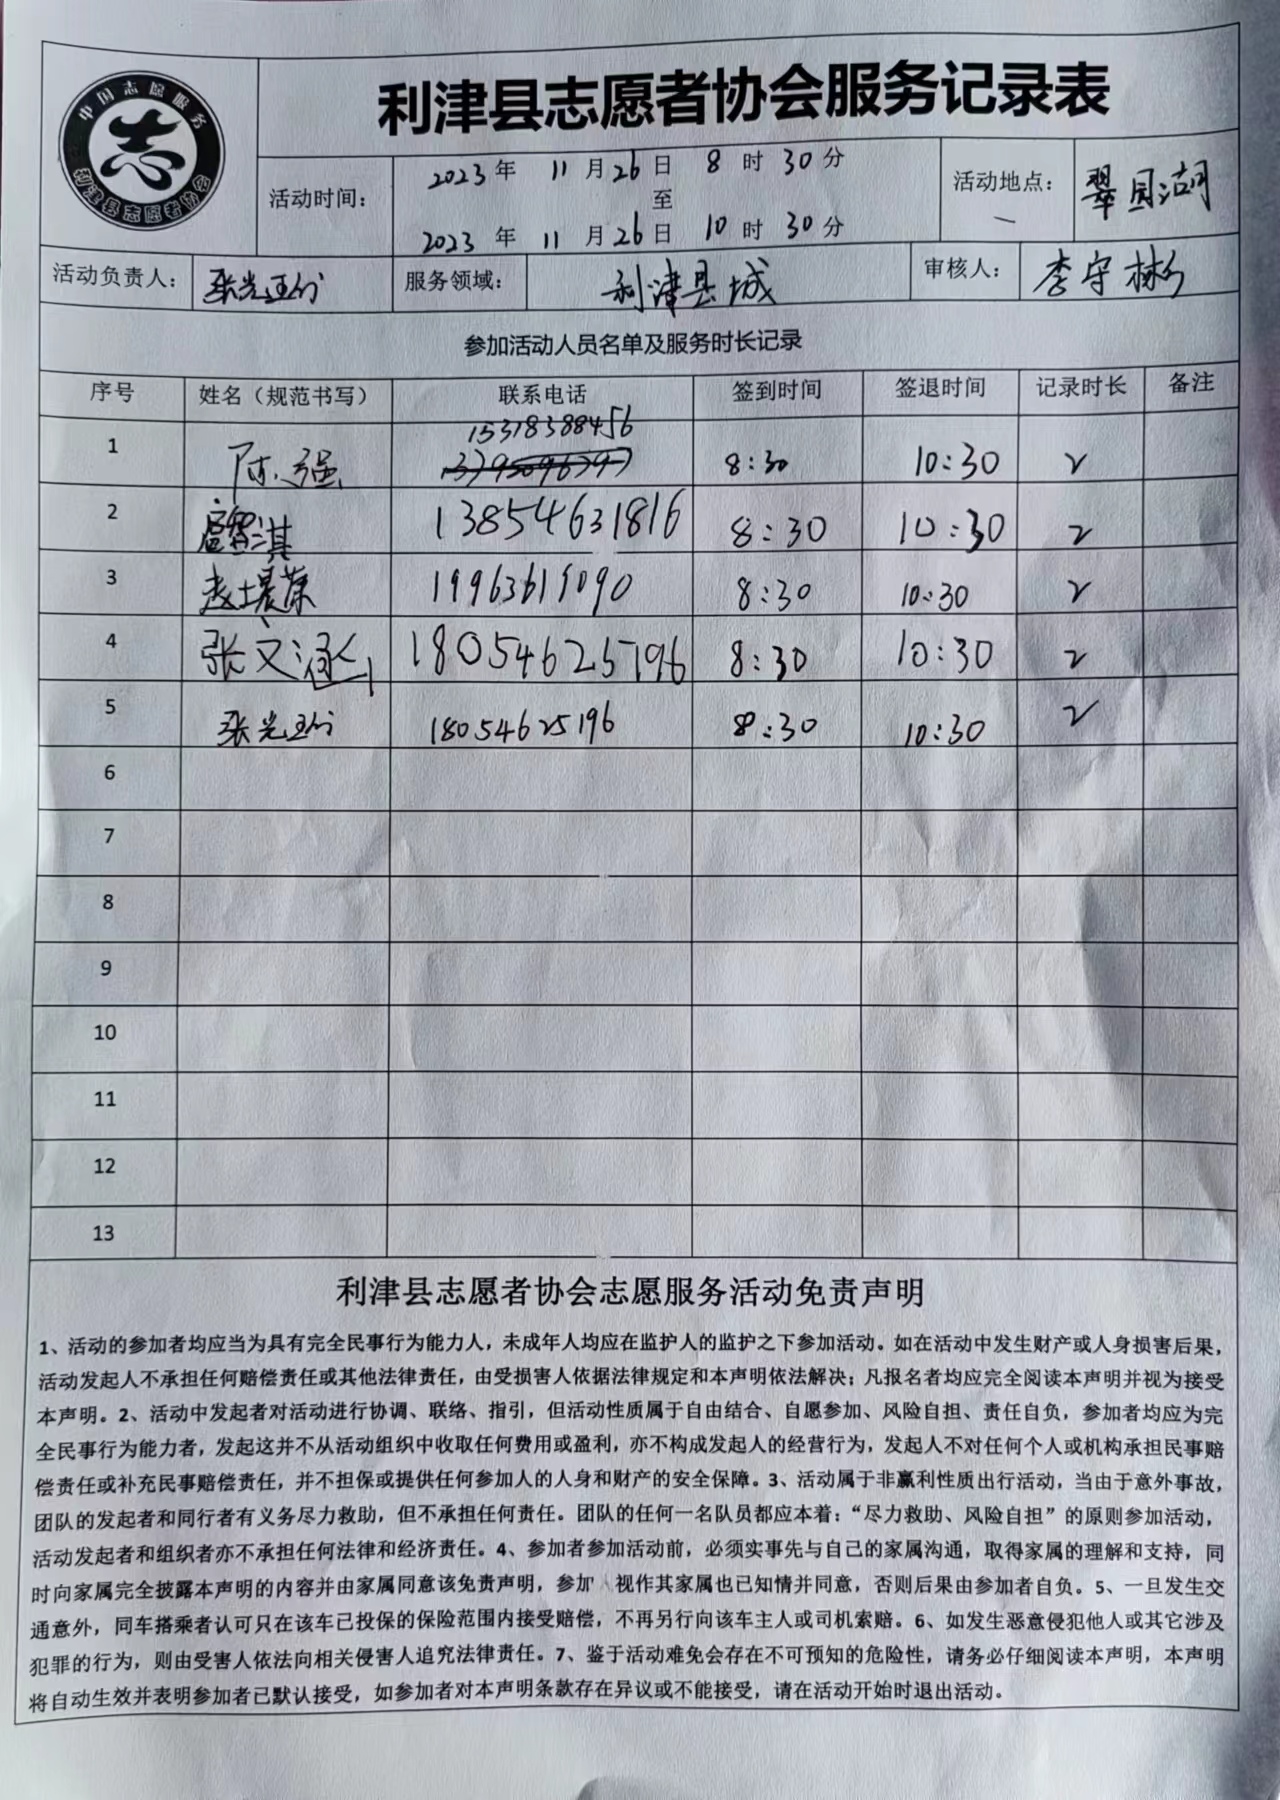 中国志愿服务
志
利津县志愿者协会
利津县志愿者协会服务记录表
活动时间：
2023年 11月26日 8时30分
至
2023年 11月26日 10时30分
活动地点：
翠园湖
活动负责人：
服务领域： 利津县城
审核人： 李守彬
参加活动人员名单及服务时长记录
序号 姓名（规范书写） 联系电话 签到时间 签退时间 记录时长 备注
1 陈强 15318388456 8:30 10:30 2
2 13854631816 8:30 10:30 2
3 19963619090 8:30 10:30 2
4 张文涵 18054625196 8:30 10:30 2
5 18054625196 8:30 10:30 2
6
7
8
9
10
11
12
13
利津县志愿者协会志愿服务活动免责声明
1、活动的参加者均应当为具有完全民事行为能力人，未成年人均应在监护人的监护之下参加活动。如在活动中发生财产或人身损害后果，
活动发起人不承担任何赔偿责任或其他法律责任，由受损害人依据法律规定和本声明依法解决；凡报名者均应完全阅读本声明并视为接受
本声明。2、活动中发起者对活动进行协调、联络、指引，但活动性质属于自由结合、自愿参加、风险自担、责任自负，参加者均应为完
全民事行为能力者，发起这并不从活动组织中收取任何费用或盈利，亦不构成发起人的经营行为，发起人不对任何个人或机构承担民事赔
偿责任或补充民事赔偿责任，并不担保或提供任何参加人的人身和财产的安全保障。3、活动属于非赢利性质出行活动，当由于意外事故，
团队的发起者和同行者有义务尽力救助，但不承担任何责任。团队的任何一名队员都应本着：“尽力救助、风险自担”的原则参加活动，
活动发起者和组织者亦不承担任何法律和经济责任。4、参加者参加活动前，必须实事先与自己的家属沟通，取得家属的理解和支持，同
时向家属完全披露本声明的内容并由家属同意该免责声明，参加人视作其家属也已知情并同意，否则后果由参加者自负。5、一旦发生交
通意外，同车搭乘者认可只在该车已投保的保险范围内接受赔偿，不再另行向该车主人或司机索赔。6、如发生恶意侵犯他人或其它涉及
犯罪的行为，则由受害人依法向相关侵害人追究法律责任。7、鉴于活动难免会存在不可预知的危险性，请务必仔细阅读本声明，本声明
将自动生效并表明参加者已默认接受，如参加者对本声明条款存在异议或不能接受，请在活动开始时退出活动。